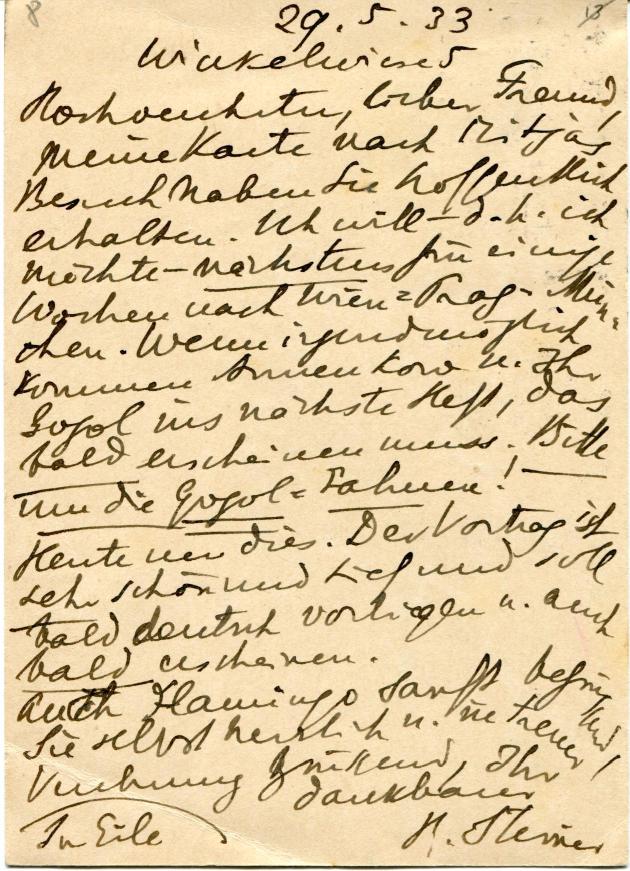 8
13
29.5.33
Winkelwiese 5
Hochverehrter, lieber Freund,
Meine Karte nach Mitjas
Besuch haben Sie hoffentlich
erhalten. Ich will – d.h. ich
möchte – nächstens für einige
Wochen nach Wien=Prag=Mün=
chen. Wenn irgendmöglich
kommen Annenkow u. Ihr
Gogol ins nächste Heft, das
bald erscheinen muss. Bitte
um die Gogol=Fahnen!
Heute nur dies. Der Vortrag ist
sehr schön und tief und soll
bald deutsch vorliegen u. auch
bald erscheinen.
Auch Flamingo sanft
Sie selbst herzlich u. in treuer
Verehrung grüssend, Ihr
dankbarer
In Eile